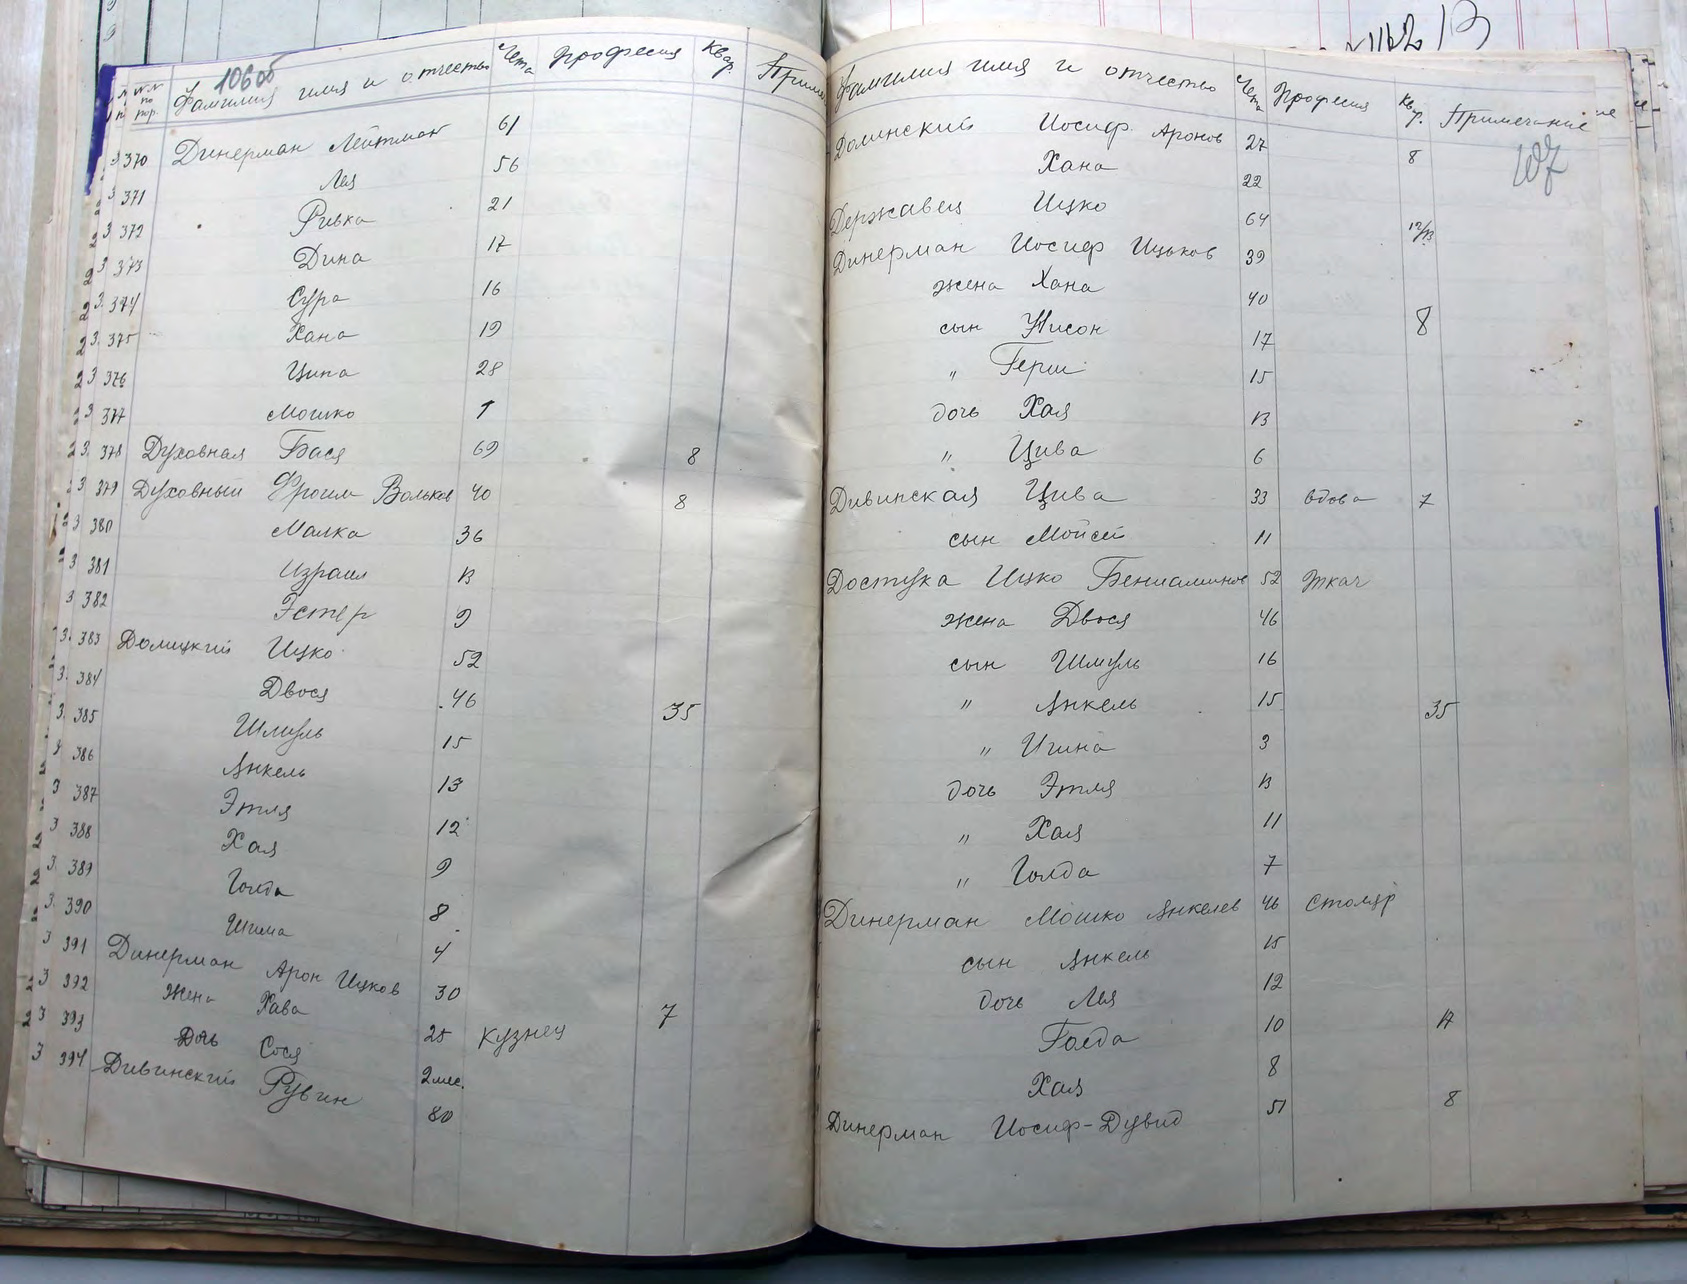 106об
N.N по пор. Фамилия имя и отчество Чета Професия Квар.
370 Динерман Лейтман 61
371 Лея 56
372 Ривка 21
373 Дина 17
374 Сура 16
375 Хана 19
376 Ципа 28
377 Мошко 1
378 Духовная Бася 69 8
379 Духовный Фроим Вольков 40 8
380 Малка 36
381 Израил 13
382 Эстер 9
383 Домицкий Ицко 52
384 Двося 46 35
385 Шмуль 15
386 Янкель 13
387 Этля 12
388 Хая 9
389 Голда 8
390 Шима 4
391 Динерман Арон Ицков 30
392 жена Хава 25 кузнец 7
393 Дочь Сося 2 мес.
394 Дивинский Рувин 80
Фамилия имя и отчество Чета Професия Квар. Примечание
107
Долинский Иосиф Аронов 27 8
Хана 22
Державец Ицко 64 12/13
Динерман Иосиф Ицьков 39
жена Хана 40
сын Нисон 17 8
" Герш 15
дочь Хая 13
" Цива 6
Дивинская Цива 33 вдова 7
сын Мойсей 11
Достука Ицко Бениаминов 52 ткач
жена Двося 46
сын Шмуль 16
" Янкель 15 35
" Игина 3
дочь Этля 13
" Хая 11
" Голда 7
Динерман Мошко Янкелев 46 столяр
сын Янкель 15
дочь Лея 12
Голда 10
Хая 8
Динерман Иосиф-Дувид 51 8